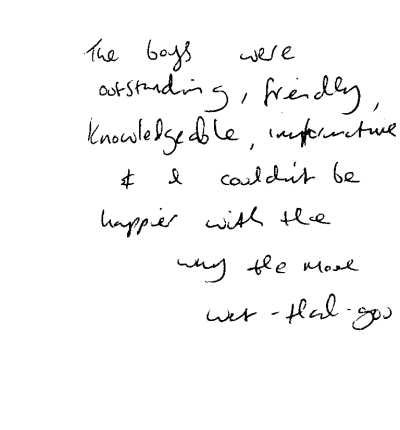 The boys were
outstanding, friendly,
knowledgeable, informative
& I couldn't be
happier with the
way the move
went - thank-you